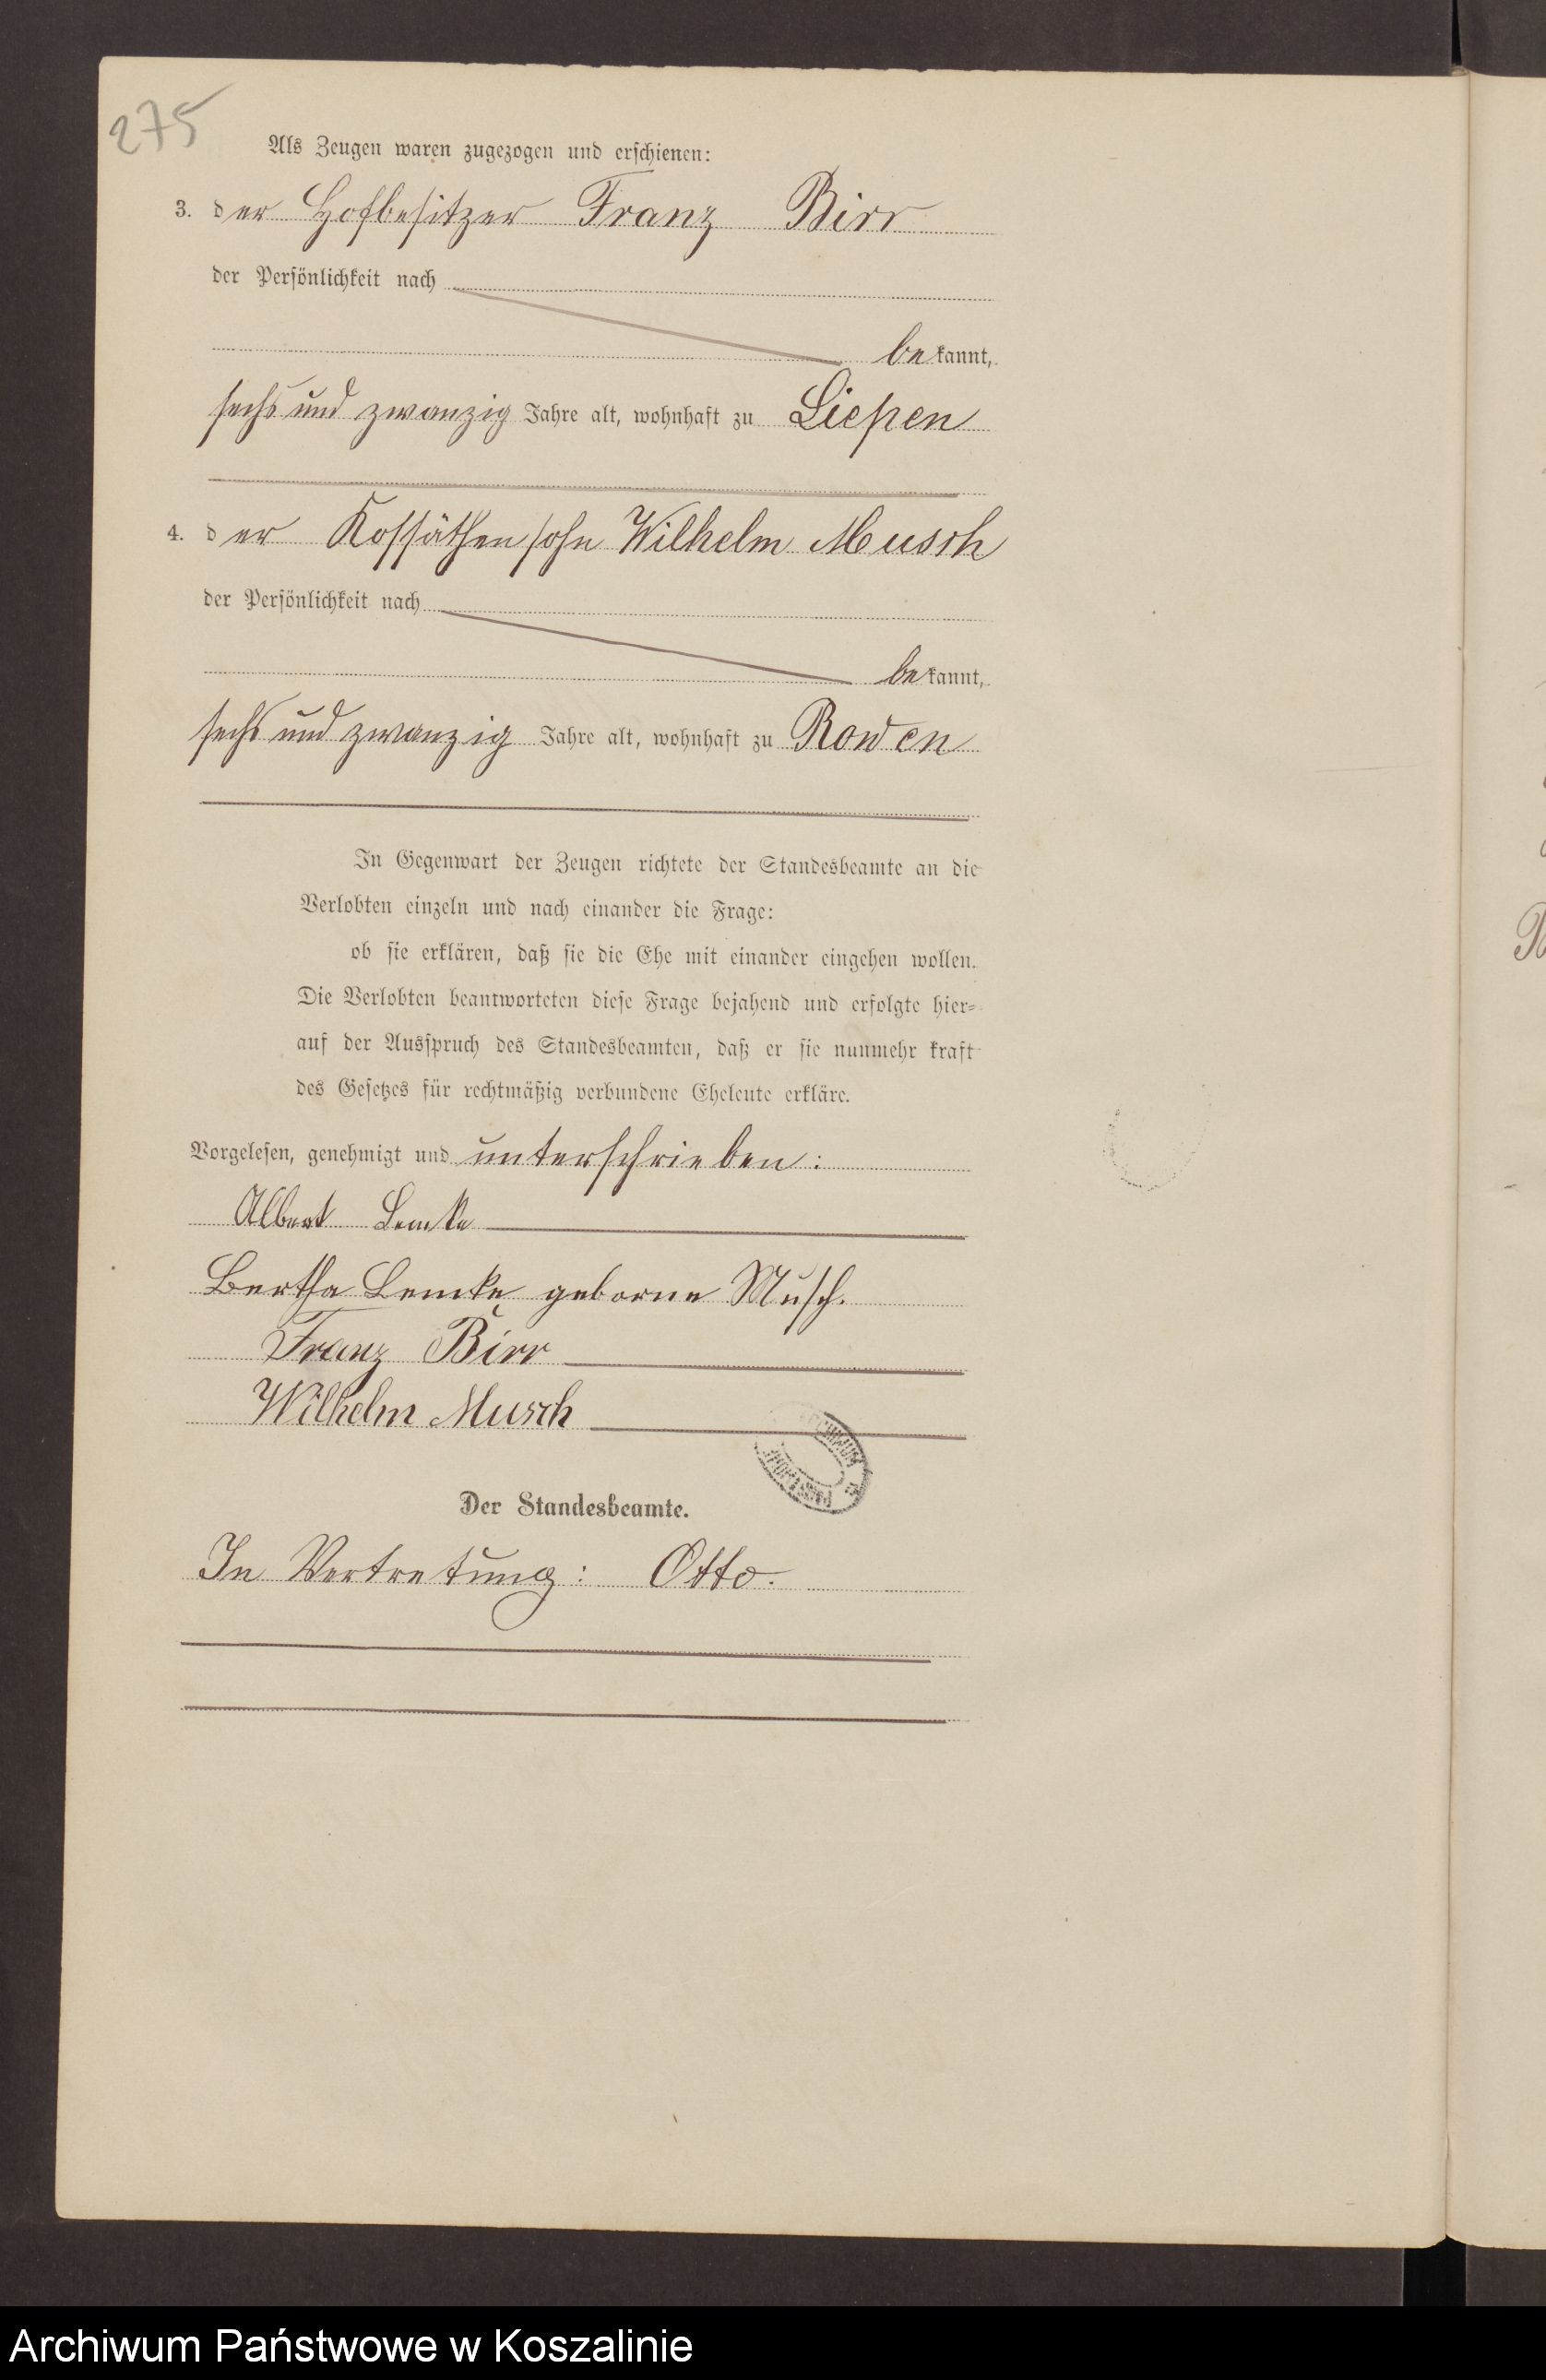 275
Als Zeugen waren zugezogen und erschienen:
3. der Hofbesitzer Franz Birr
der Persönlichkeit nach
bekannt,
sechs und zwanzig Jahre alt, wohnhaft zu Liepen
4. der Kossäthensohn Wilhelm Musch
der Persönlichkeit nach
bekannt,
sechs und zwanzig Jahre alt, wohnhaft zu Rowen
In Gegenwart der Zeugen richtete der Standesbeamte an die
Verlobten einzeln und nach einander die Frage:
ob sie erklären, daß sie die Ehe mit einander eingehen wollen.
Die Verlobten beantworteten diese Frage bejahend und erfolgte hier=
auf der Ausspruch des Standesbeamten, daß er sie nunmehr kraft
des Gesetzes für rechtmäßig verbundene Eheleute erkläre.
Vorgelesen, genehmigt und unterschrieben:
Albert Lemke
Bertha Lemke geborne Musch.
Franz Birr
Wilhelm Musch
Der Standesbeamte.
In Vertretung: Otto.
Archiwum Państwowe w Koszalinie